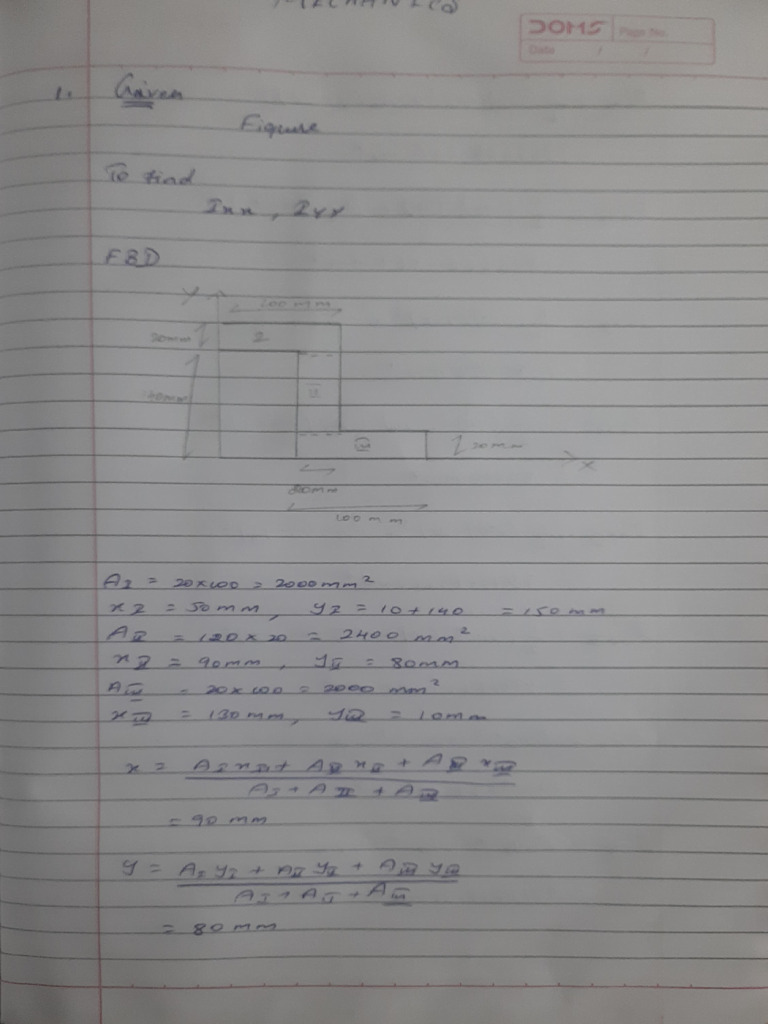 MECHANICS
DOMS Page No.
Date / /
1. Given
Figure
To find
Ixx, Iyy
FBD
Y
100 mm
20mm
I
140mm
II
III
20mm
X
20mm
100 mm
AI = 20×100 = 2000mm²
xI = 50mm, yI = 10+140 = 150mm
AII = 120×20 = 2400 mm²
xII = 90mm, yII = 80mm
AIII = 20×100 = 2000 mm²
xIII = 130mm, yIII = 10mm
x = AI xI + AII xII + AIII xIII
AI + AII + AIII
= 90 mm
y = AI yI + AII yII + AIII yIII
AI + AII + AIII
= 80mm